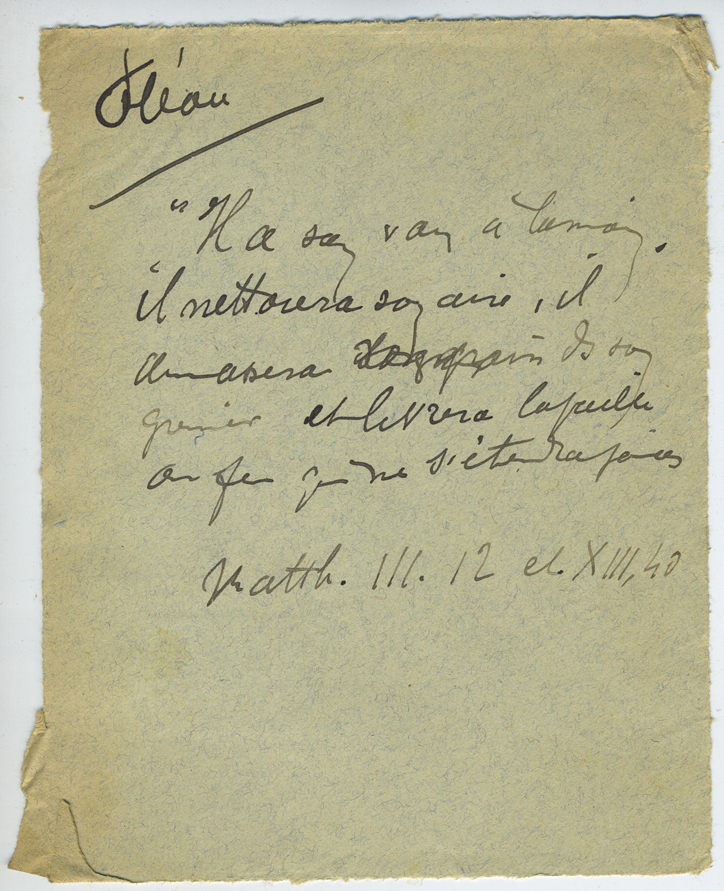 Fléau
"Il a son van à la main.
il nettoiera son aire, il
amassera grain ds son
grenier et livrera la paille
au feu qui ne s'éteindra jamais
Matth. III. 12 et XIII, 40